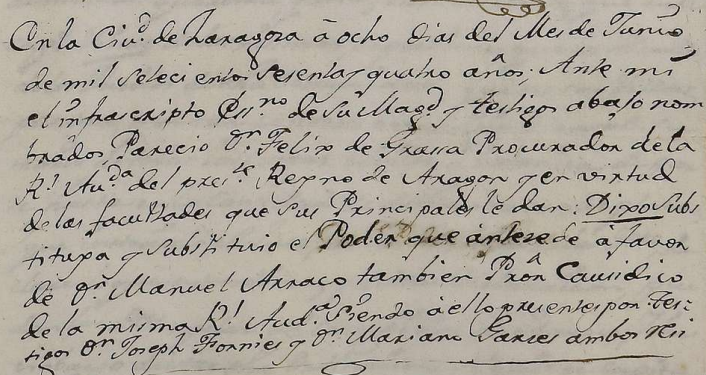 En la Ciu.d de Zaragoza á ocho dias del Mes de Junio
de mil seteci entos sesenta y quatro años; Ante mi
el infrascripto Ess.no de Su Mag.d y testigos abajo nom
brados, Parecio D.n Felix de Grassa Procurador de la
R.l Au.da del pres.te Reyno de Aragon y en virtud
de las facultades que sus Principales le dan: Dixo Subs
tituya y substituio el Poder que antesede á favor
de D.n Manuel Arraco tambien Pro.r Causidico
de la misma R.l Aud.a Siendo á ello presentes por tes=
tigos D.n Joseph Fornies y D.n Mariano Garses ambos resi